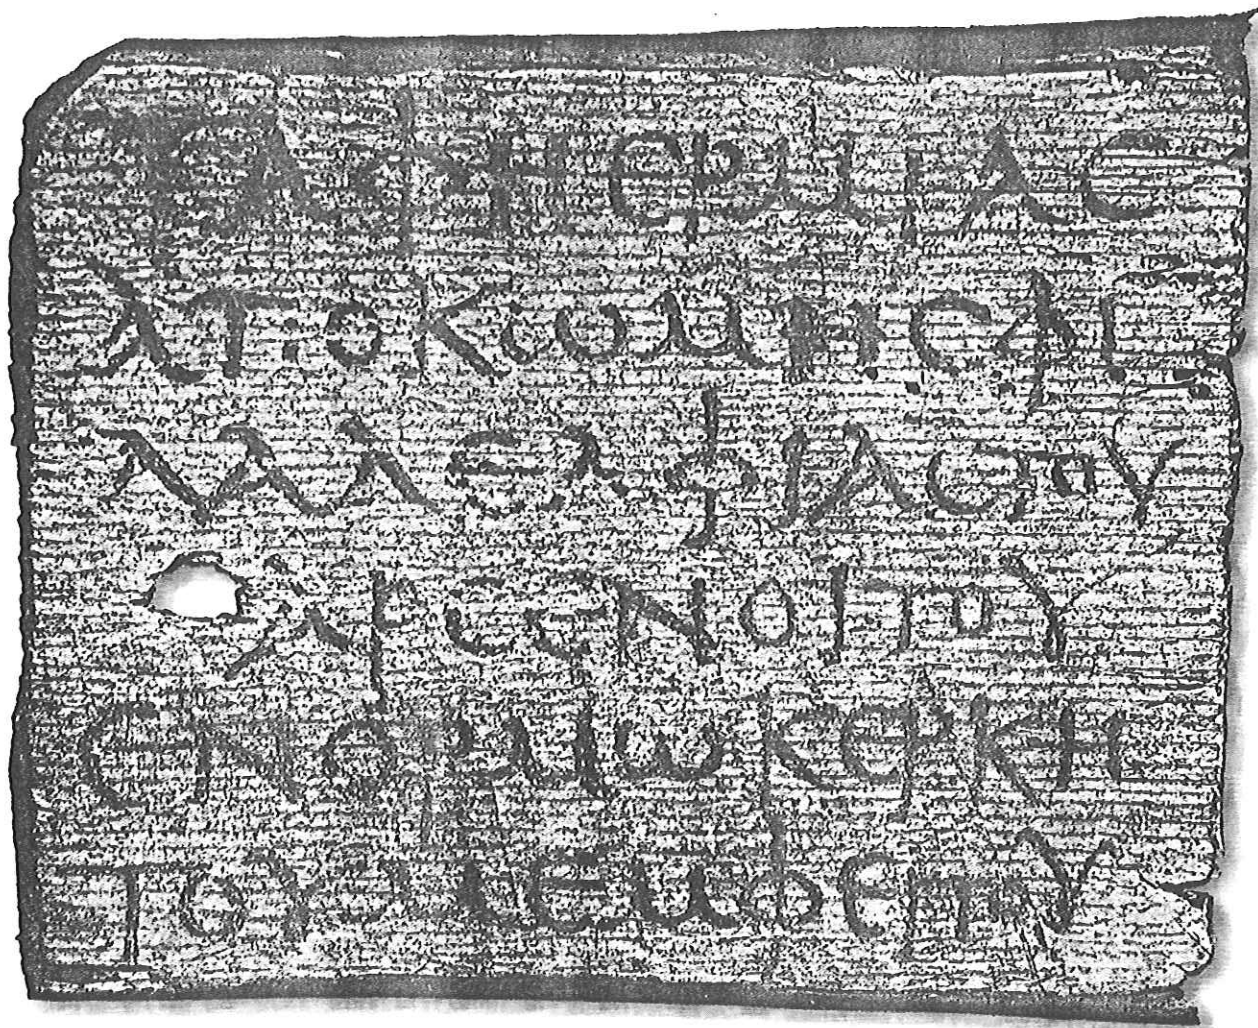 ταφη ερμιας
απο κωμης φι
λαδελφιας του
αρσενοιτου
εν ορμω κερκη
του μεμφετου